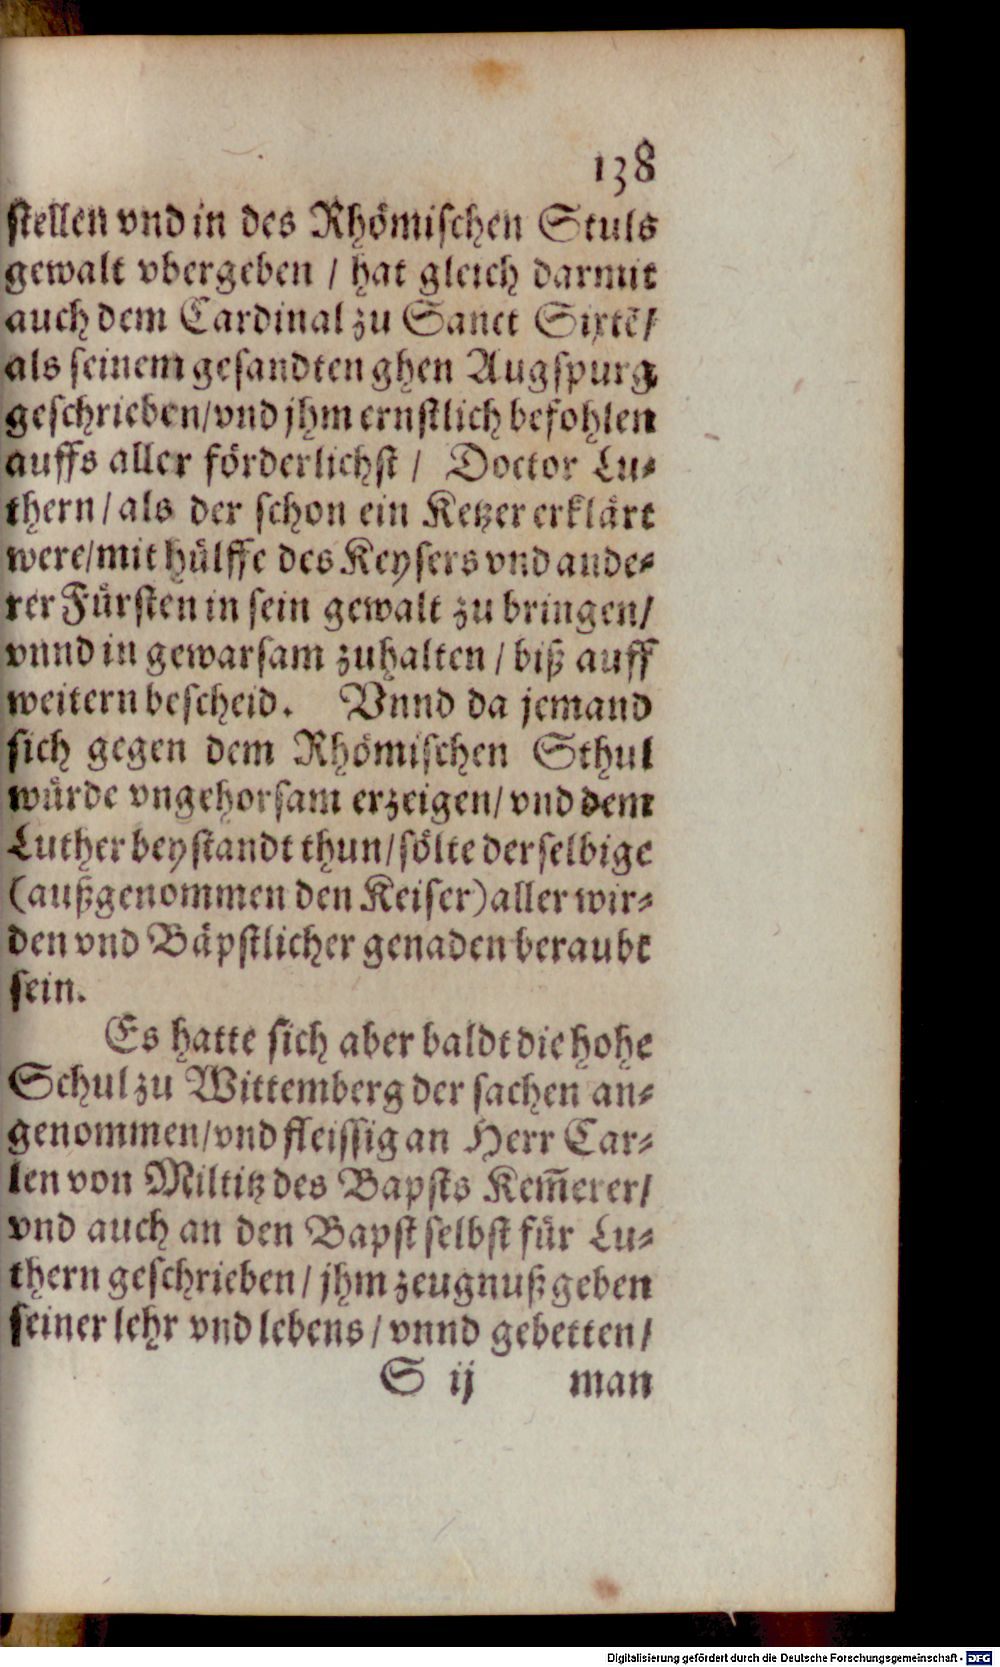 138
stellen vnd in des Rhömischen Stuls
gewalt vbergeben / hat gleich darmit
auch dem Cardinal zu Sanct Sixtē/
als seinem gesandten ghen Augspurg
geschrieben/vnd jhm ernstlich befohlen
auffs aller förderlichst / Doctor Lu-
thern/als der schon ein Ketzer erklärt
were/mit hülffe des Keysers vnd ande-
rer Fürsten in sein gewalt zu bringen/
vnnd in gewarsam zuhalten / biß auff
weitern bescheid. Vnnd da jemand
sich gegen dem Rhömischen Sthul
würde vngehorsam erzeigen/vnd dem
Luther beystandt thun/sölte derselbige
(außgenommen den Keiser) aller wir-
den vnd Bäpstlicher genaden beraubt
sein.
Es hatte sich aber baldt die hohe
Schul zu Wittemberg der sachen an-
genommen/vnd fleissig an Herr Car-
len von Miltitz des Bapsts Kem̄erer/
vnd auch an den Bapst selbst für Lu-
thern geschrieben/jhm zeugnuß geben
seiner lehr vnd lebens/vnnd gebetten/
S ij man
Digitalisierung gefördert durch die Deutsche Forschungsgemeinschaft - DFG